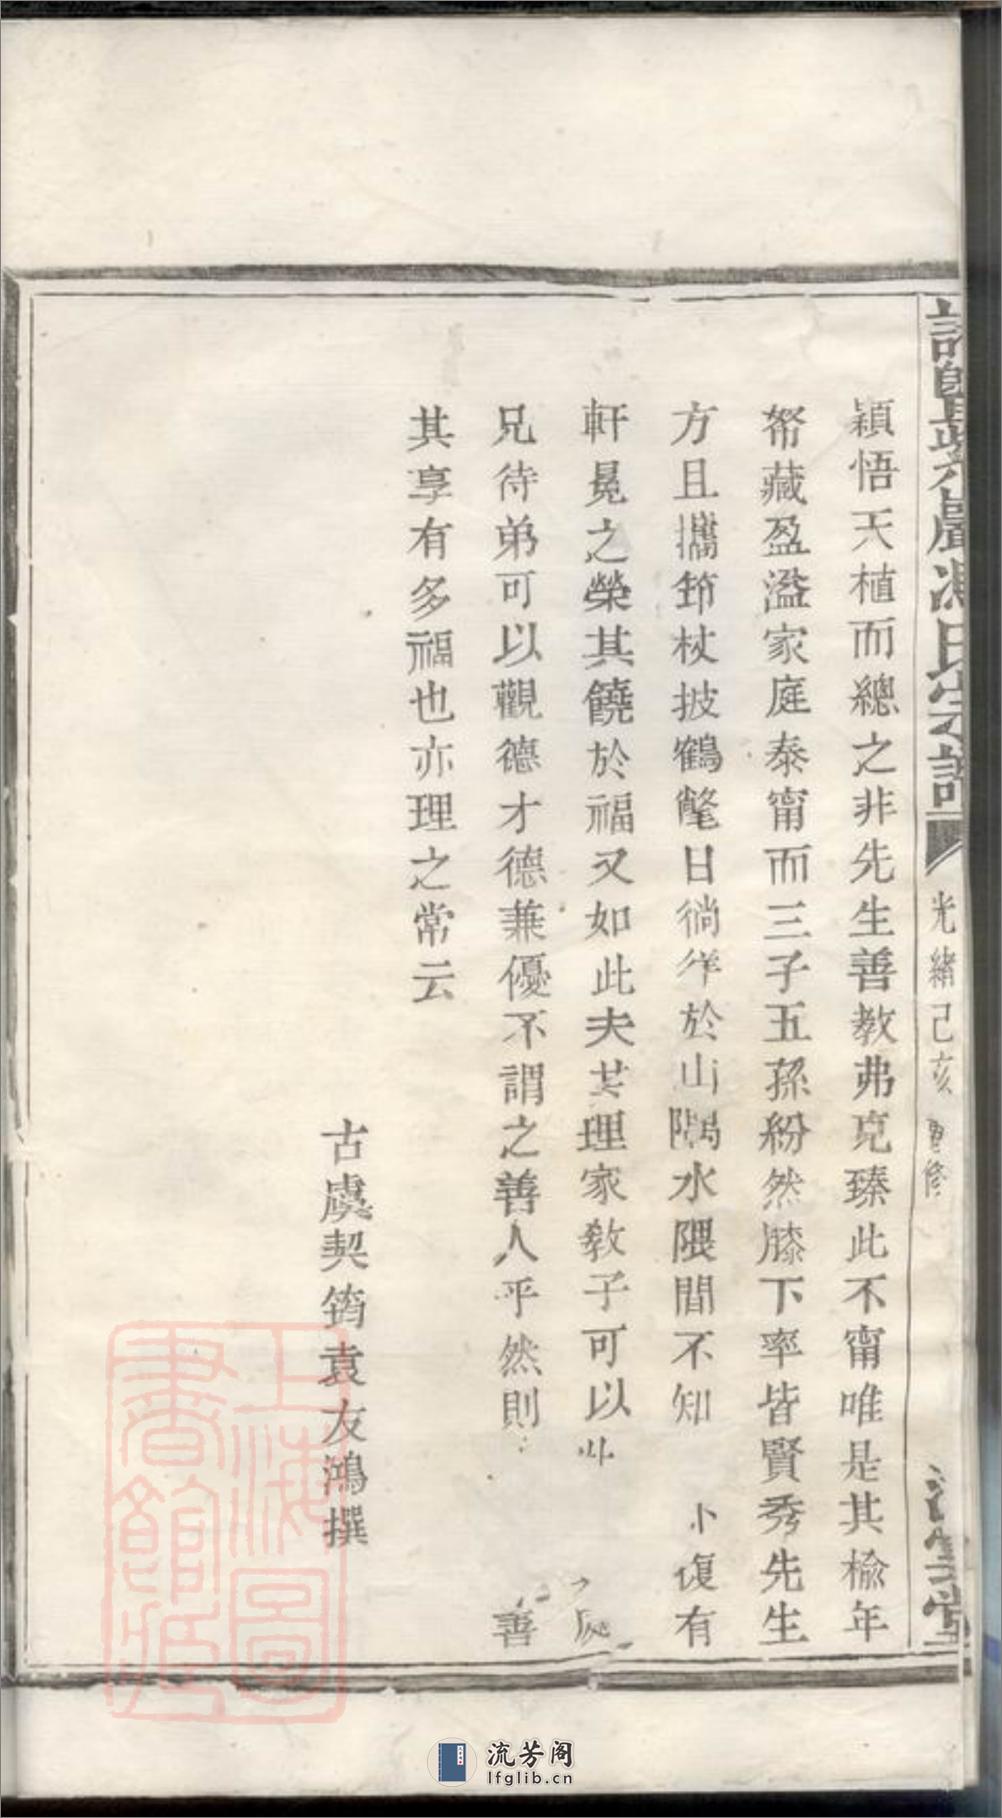 光緒己亥重修
穎悟天植而總之非先生善教弗克臻此不甯唯是其榆年
帑藏盈溢家庭泰甯而三子五孫紛然膝下率皆賢秀先生
方且攜笻杖披鶴氅日徜徉於山隅水隈間不知 復有
軒冕之榮其饒於福又如此夫其理家教子可以 處
兄待弟可以觀德才德兼優不謂之善人乎然則 善
其享有多福也亦理之常云
古虞契筠袁友鴻撰
上海圖書館藏
流芳阁
lfglib.cn